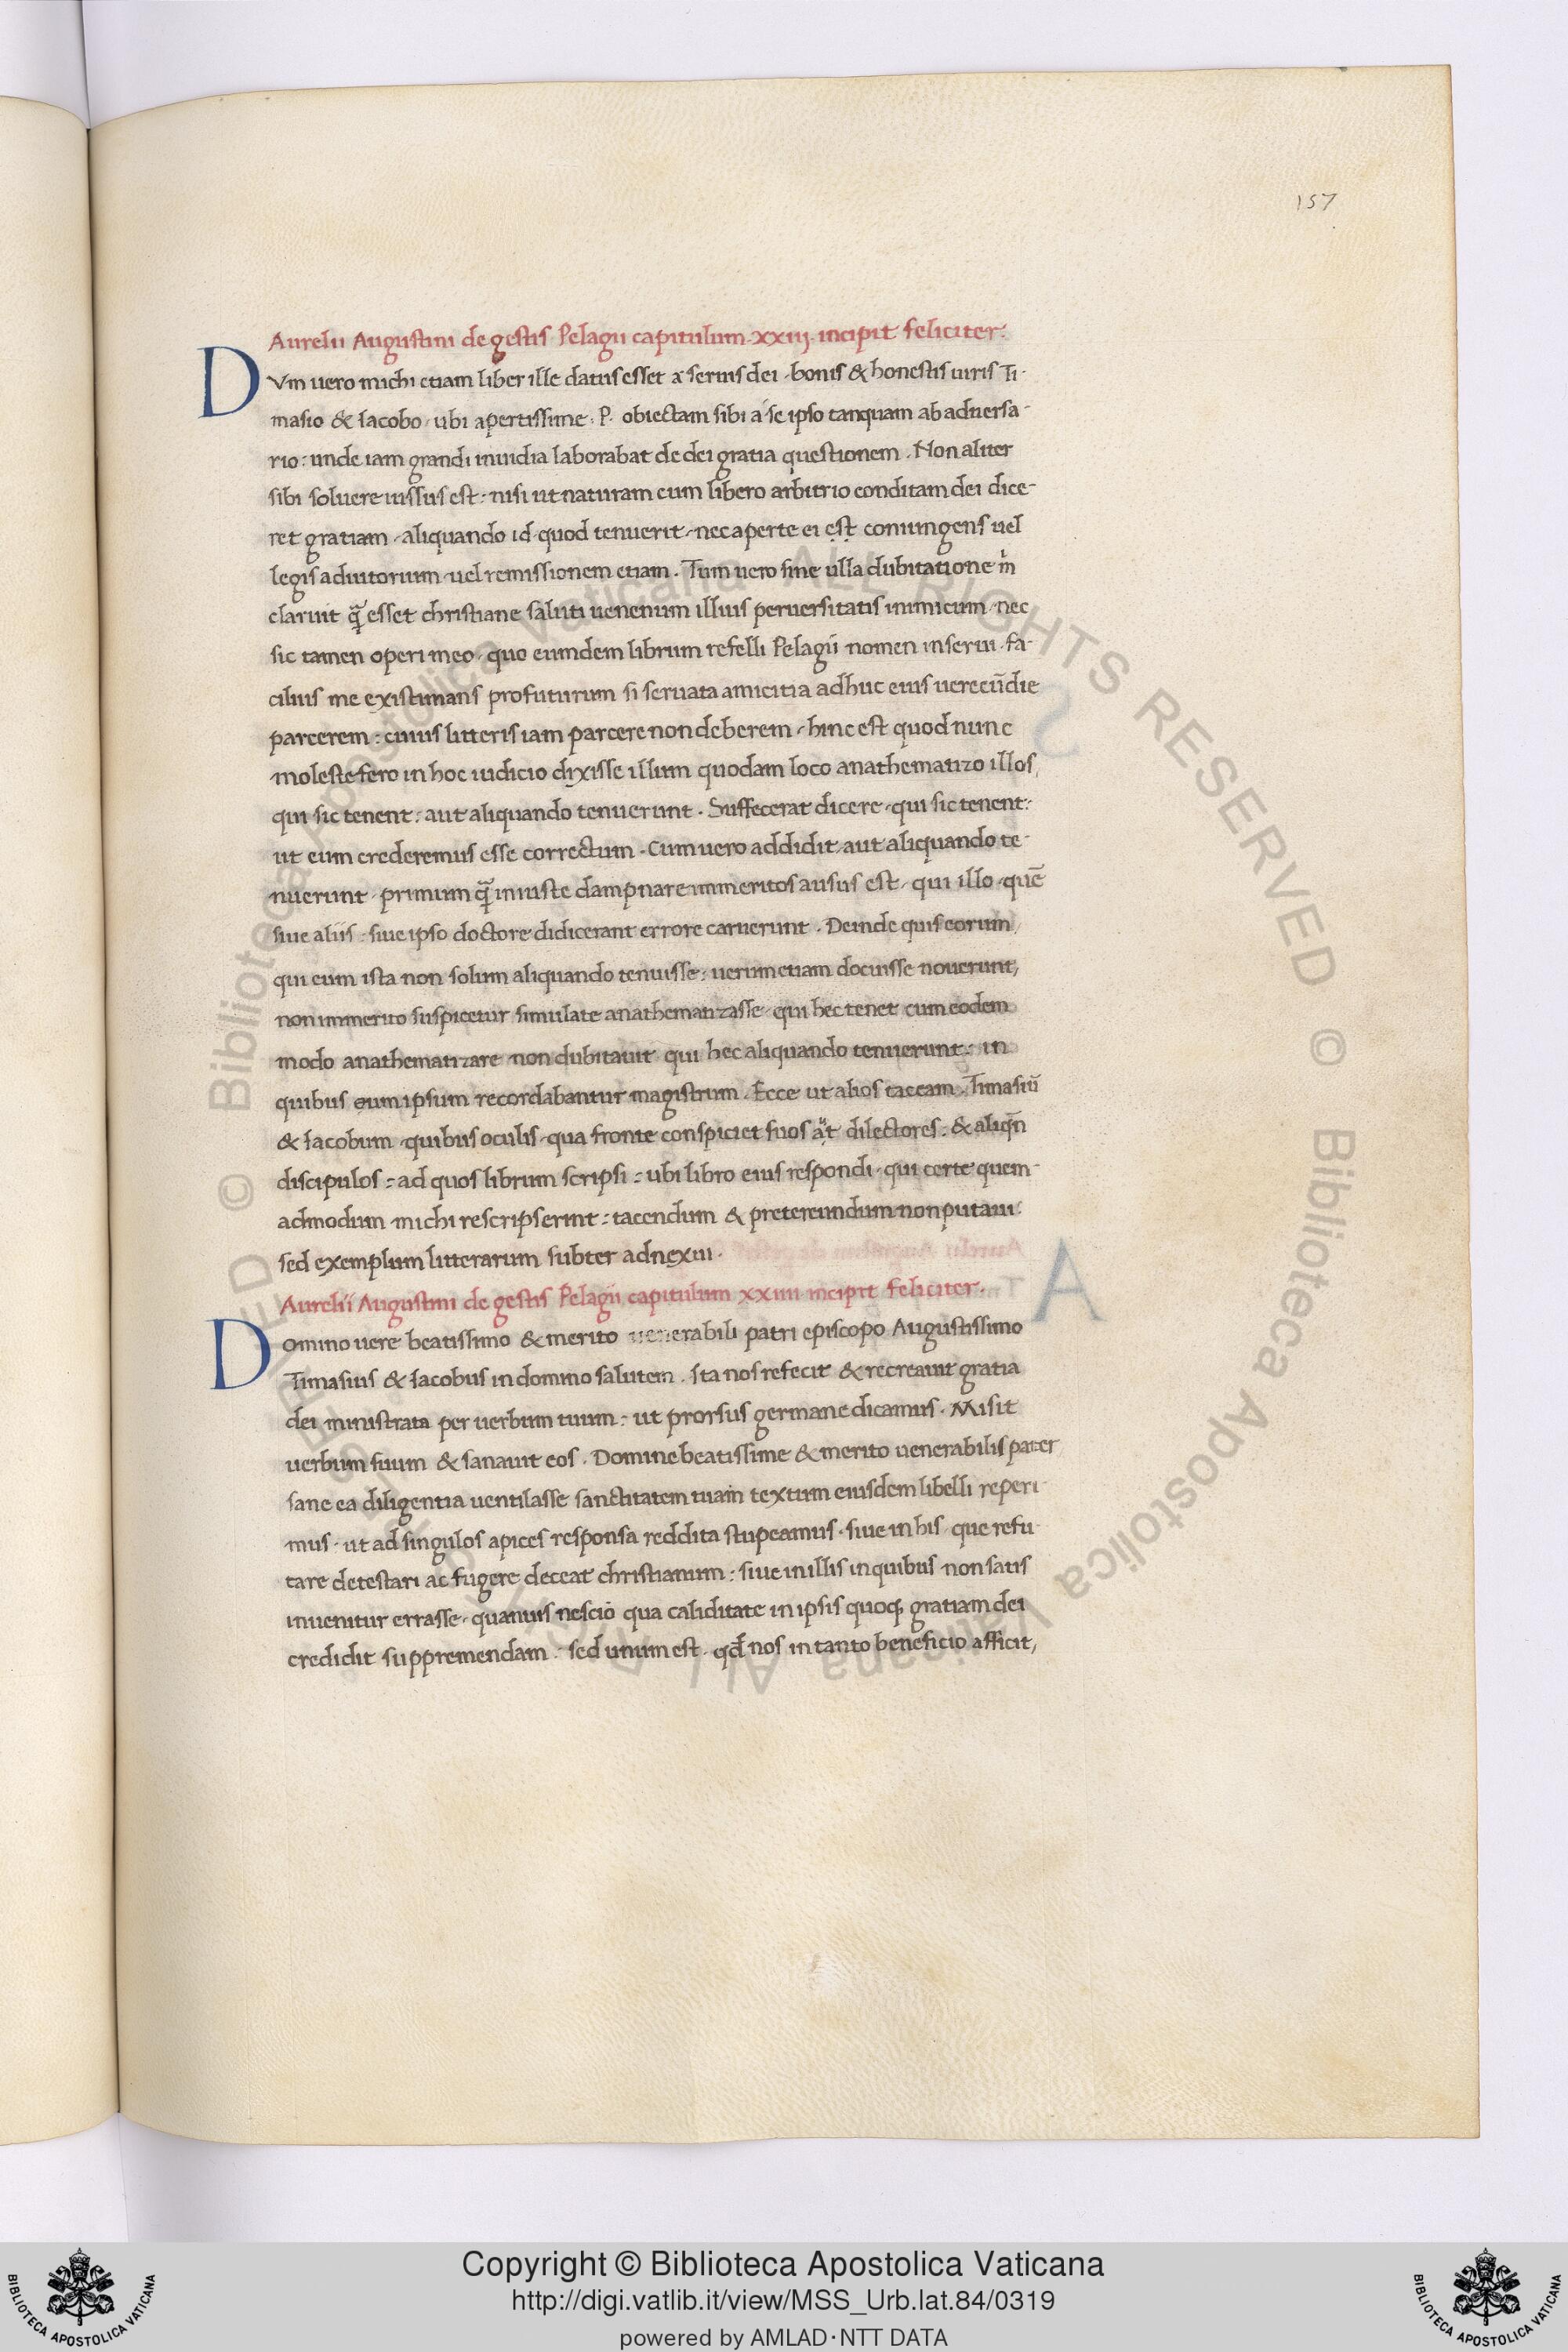 157
Aurelii Augustini de gestis Pelagii capitulum .xxiij. incipit feliciter.
DVm uero michi etiam liber ille datus esset a seruis dei . bonis & honestis uiris Ti-
masio & Iacobo . ubi apertissime . P. obiectam sibi a se ipso tanquam ab aduersa-
rio : unde iam grandi inuidia laborabat de dei gratia questionem . Non aliter
sibi soluere uissus est : nisi ut naturam cum libero arbitrio conditam dei dice-
ret gratiam . aliquando id quod tenuerit . nec aperte ei est coniungens uel
legis adiutorium uel remissionem etiam . Tum uero sine ulla dubitatione m̍
claruit q̃ esset christiane saluti uenenum illius peruersitatis inimicum . nec
sic tamen operi meo . quo eumdem librum refelli Pelagii nomen inserui . fa-
cilius me existimans profuturum si seruata amicitia adhuc eius uerecũdie
parcerem : cuius litteris iam parcere non deberem . hinc est quod nunc
moleste fero in hoc iudicio dixisse illum quodam loco anathematizo illos,
qui sic tenent : aut aliquando tenuerunt . Suffecerat dicere . qui sic tenent :
ut eum crederemus esse correctum . Cum uero addidit aut aliquando te-
nuerunt . primum q̃ iniuste dampnare immeritos ausus est . qui illo . quẽ
siue aliis : siue ipso doctore didicerant errore caruerunt . Deinde quis eorum,
qui eum ista non solum aliquando tenuisse : uerum etiam docuisse nouerunt,
non immerito suspicetur simulate anathematizasse . qui hec tenet cum eodem
modo anathematizare non dubitauit qui hec aliquando tenuerunt : in
quibus eum ipsum recordabantur magistrum . Ecce ut alios taceam . Timasiũ
& Iacobum . quibus oculis . qua fronte conspiciet suos dilectores . & aliqn̄
discipulos : ad quos librum scripsi : ubi libro eius respondi . qui certe quem-
admodum michi rescripserint : tacendum & pretereundum non putaui :
sed exemplum litterarum subter adnexui .
Aurelii Augustini de gestis Pelagii capitulum xxiiii incipit feliciter.
Domino uere beatissimo & merito uenerabili patri episcopo Augustissimo
Timasius & Iacobus in domino salutem . Ita nos refecit & recreauit gratia
dei ministrata per uerbum tuum : ut prorsus germane dicamus . Misit
uerbum suum & sanauit eos . Domine beatissime & merito uenerabilis pater
sane ea diligentia uentilasse sanctitatem tuam textum eiusdem libelli reperi-
mus . ut ad singulos apices responsa reddita stupeamus . siue in his . que refu-
tare detestari ac fugere deceat christianum : siue in illis in quibus non satis
inuenitur errasse . quanuis nescio qua caliditate in ipsis quoq; gratiam dei
credidit suppremendam : sed unum est . qđ nos in tanto beneficio afficit,
Copyright © Biblioteca Apostolica Vaticana
http://digi.vatlib.it/view/MSS_Urb.lat.84/0319
powered by AMLAD·NTT DATA
BIBLIOTECA APOSTOLICA VATICANA
BIBLIOTECA APOSTOLICA VATICANA